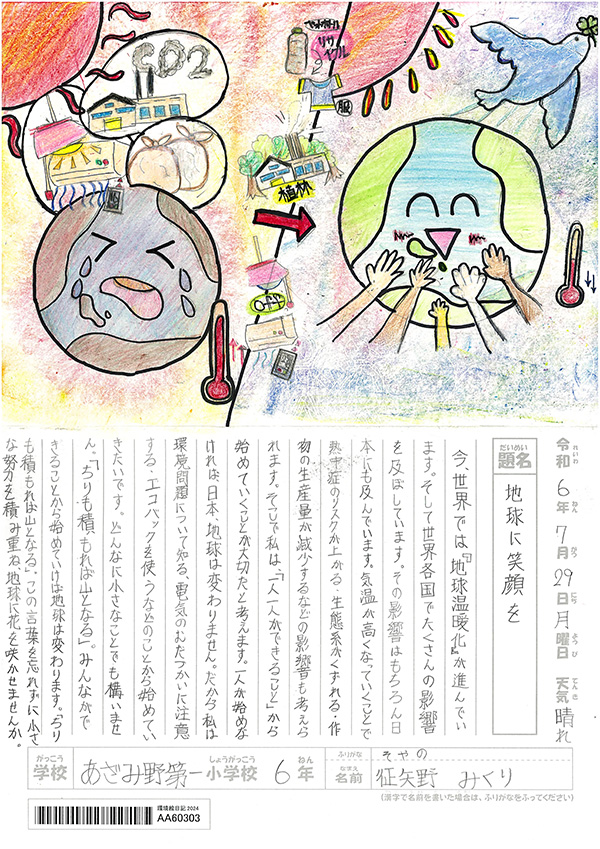 CO2
ペットボトル
リサイクル
服
植林
Off
令和6年7月29日月曜日 天気 晴れ
れいわ ねん がつ にち ようび てんき
だいめい
題名
地球に笑顔を
今、世界では『地球温暖化』が進んでい
ます。そして世界各国でたくさんの影響
を及ぼしています。その影響はもちろん日
本にも及んでいます。気温が高くなっていくことで
熱中症のリスクが上がる・生態系がくずれる・作
物の生産量が減少するなどの影響も考えら
れます。そこで私は、「一人一人ができること」から
始めていくことが大切だと考えます。一人が始めな
ければ、日本、地球は変わりません。だから私は
環境問題について知る、電気のむだづかいに注意
する・エコバックを使うなどのことから始めてい
きたいです。どんなに小さなことでも構いませ
ん。「ちりも積もれば山となる」。みんなでで
きることから始めていけば地球は変わります。「ちり
も積もれば山となる」この言葉を忘れずに小さ
な努力を積み重ね、地球に花を咲かせませんか。
がっこう しょうがっこう ねん
学校 あざみ野第一小学校 6年
ふりがな そやの
なまえ
名前 征矢野 みくり
(漢字で名前を書いた場合は、ふりがなをふってください)
環境絵日記2024
AA60303